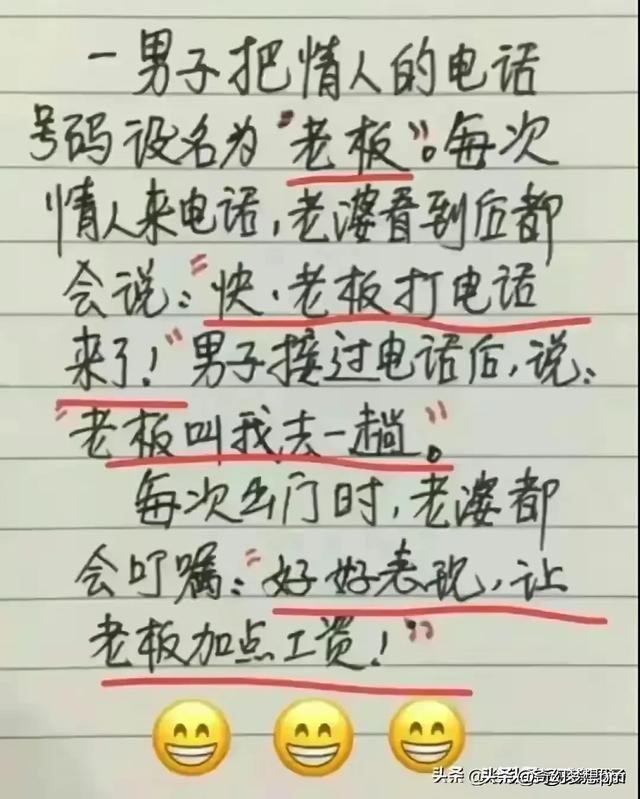 一男子把情人的电话
号码设名为"老板"。每次
情人来电话,老婆看到后都
会说:"快,老板打电话
来了!"男子接过电话后,说:
"老板叫我去一趟。"
每次出门时,老婆都
会叮嘱:"好好表现,让
老板加点工资!"
头条 @头条